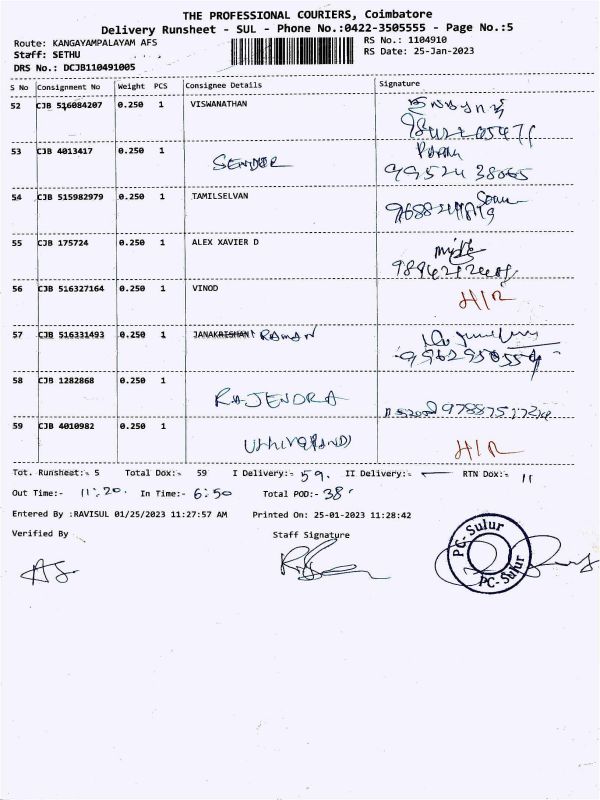 THE PROFESSIONAL COURIERS, Coimbatore
Delivery Runsheet - SUL - Phone No.:0422-3505555 - Page No.:5
Route: KANGAYAMPALAYAM AFS
RS No.: 1104910
Staff: SETHU
RS Date: 25-Jan-2023
DRS No.: DCJB110491005
S No Consignment No Weight PCS Consignee Details Signature
52 CJB 516084207 0.250 1 VISWANATHAN
53 CJB 4013417 0.250 1
99524 38065
54 CJB 515982979 0.250 1 TAMILSELVAN
55 CJB 175724 0.250 1 ALEX XAVIER D
56 CJB 516327164 0.250 1 VINOD H/R
57 CJB 516331493 0.250 1 JANAKRISHAN RAMAN
9962950554
58 CJB 1282868 0.250 1
RAJENDRA
59 CJB 4010982 0.250 1
H/R
Tot. Runsheet:- 5 Total Dox:- 59 I Delivery:- 59. II Delivery:- RTN Dox:- 11
Out Time:- 11:20. In Time:- 6:50 Total POD:- 38
Entered By :RAVISUL 01/25/2023 11:27:57 AM Printed On: 25-01-2023 11:28:42
Verified By Staff Signature
PC-Sulur
PC-Sulur